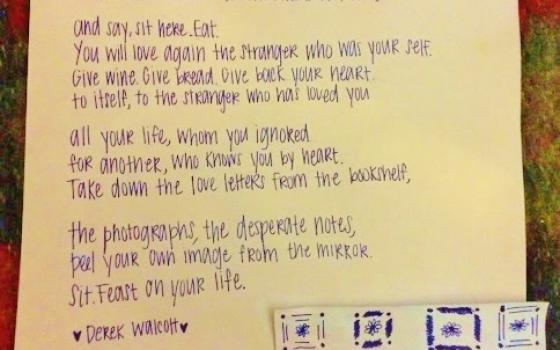 and say, sit here. Eat.
You will love again the stranger who was your self.
Give wine. Give bread. Give back your heart.
to itself, to the stranger who has loved you
all your life, whom you ignored
for another, who knows you by heart.
Take down the love letters from the bookshelf,
the photographs, the desperate notes,
peel your own image from the mirror.
Sit. Feast on your life.
♥ Derek Walcott ♥